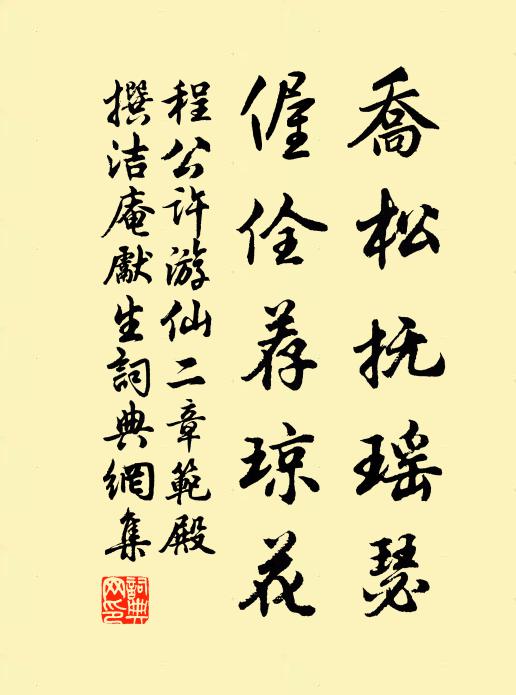 喬松抚瑶瑟
偓佺荐琼花
程公许游仙二章範殿
撰洁庵獻生詞典網集
詞典网印